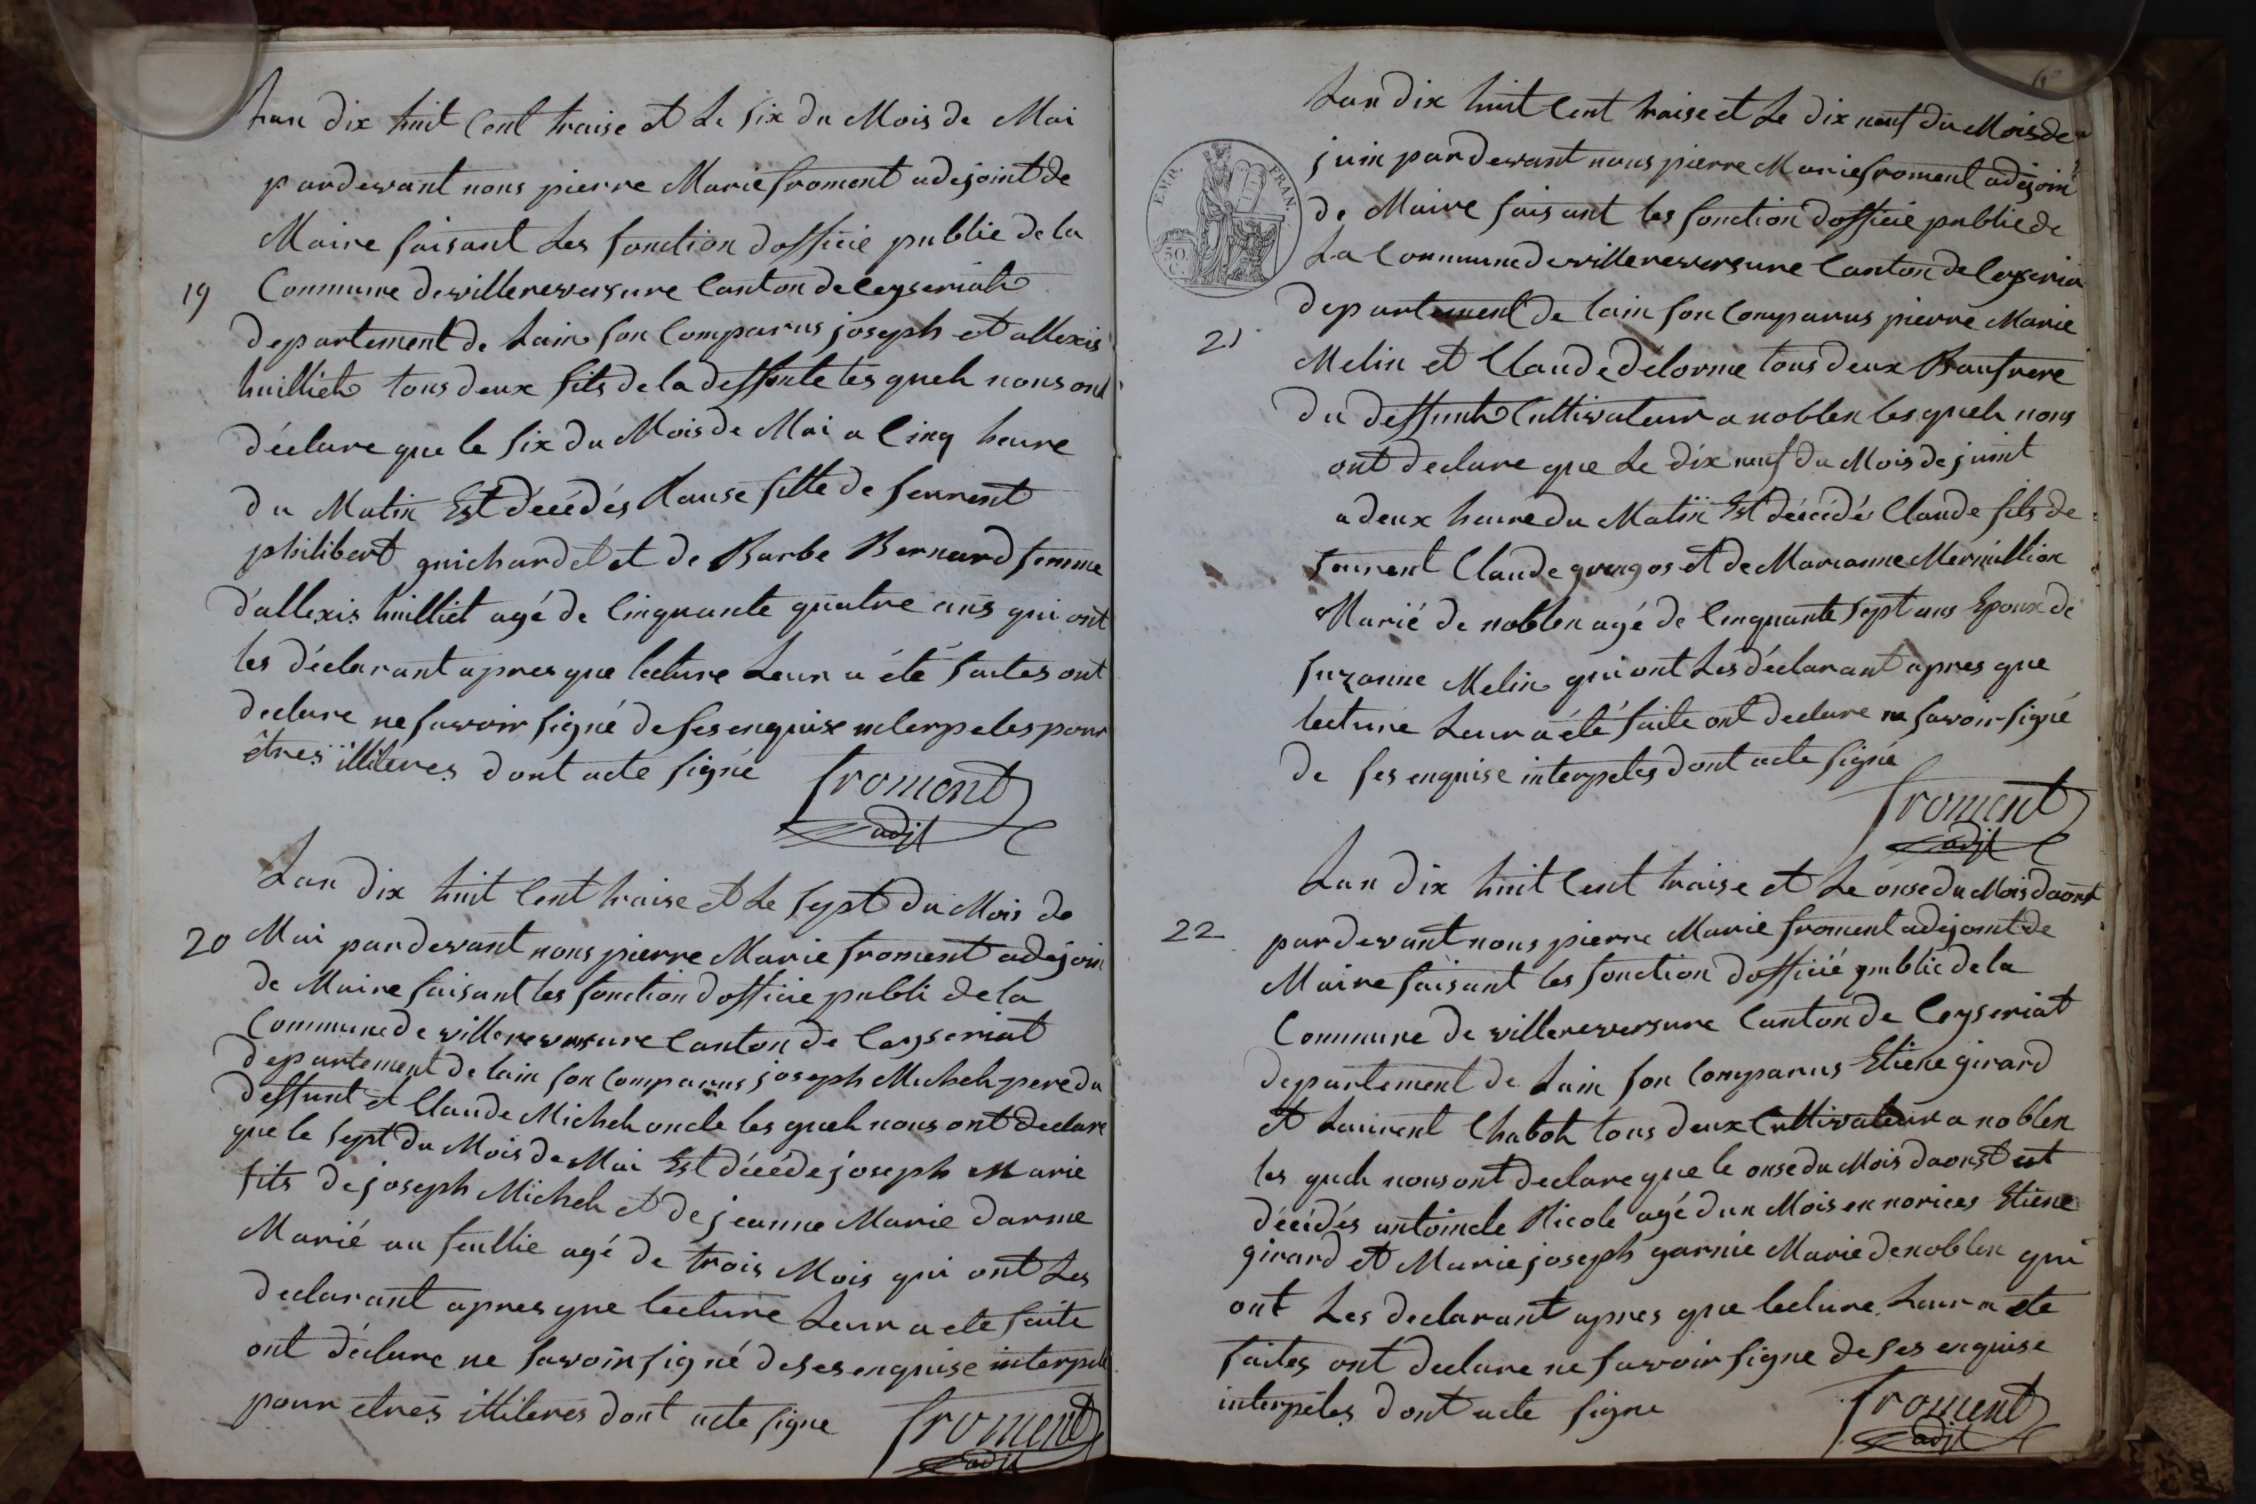 Lan dix huit Cent traise et Le six du Mois de Mai
pardevant nous pierre Marie froment adejoint de
Maire faisant Les fonction dofficie public de la
19 Commune de villereversure Canton de Ceyseriah
departement de Lain son Comparus joseph et allexis
huillieh tous deux fils de la deffunte les queh nous ont
déclare que le six du Mois de Mai a Cinq heure
du Matin Est décédés Rause fille de feurent
philibert guichardet et de Barbe Bernard femme
d'allexis huilliet agé de Cinquante quatre ans qui ont
les déclarant apres que lecture Leur a été faites ont
declare ne savoir signé de ses enquix interpeles pour
êtres illiteres dont acte signé
froment
adjt
Lan dix huit Cent traise et Le sept du Mois de
20 Mai pardevant nous pierre Marie froment adejoin
de Maire faisant les fonction dofficie publi de la
Commune de villereversure Canton de Ceyseriat
departement de lain son Comparus joseph Micheh pere du
deffunt et Claude Micheh oncle les queh nous ont declare
que le sept du Mois de Mai Est décéde joseph Marie
fils de joseph Micheh et de jeanne Marie darme
Marié au feullie agé de trois Mois qui ont Les
declarant apres que lecture Leur a ete faite
ont déclare ne savoir signé de ses enquise interpele
pour etres illiteres dont acte signe
froment
adjt
Lan dix huit Cent traise et Le dix neuf du Mois de
juin pardevant nous pierre Marie froment adejoin
EMP. FRAN.
50 C.
de Maire faisant les fonction dofficie public de
La Commune de villereversure Canton de Ceyseria
departement de lain son Comparus pierre Marie
21 Melin et Claude delorme tous deux Baufrere
du deffunh Cultivateur a noblen les queh nous
ont declare que Le dix neuf du Mois de juint
a deux heure du Matin Est décédé Claude fils de
feurent Claude grengos et de Marianne Mermillion
Marié de noblen agé de Cinquante sept ans Epoux de
suzanne Melin qui ont Les déclarant apres que
lecture Leur a été faite ont declare ne savoir signé
de ses enquise interpeles dont acte signé
froment
adjt
Lan dix huit Cent traise et Le onse du Mois daoust
22 pardevant nous pierre Marie froment adejoint de
Maire faisant les fonction dofficié public de la
Commune de villereversure Canton de Ceyseriat
departement de Lain son Comparus Etiene girard
et Laurent Chaboh tous deux Cultivateur a noblen
les queh nous ont declare que le onse du Mois daoust est
décédés antoinele Nicole agé dun Mois en norices Etiene
girard et Marie joseph garnie Marie de noblen qui
ont Les declarant apres que lecture Leur a ete
faites ont declare ne savoir signe de ses enquise
interpeles dont acte signe
froment
adjt